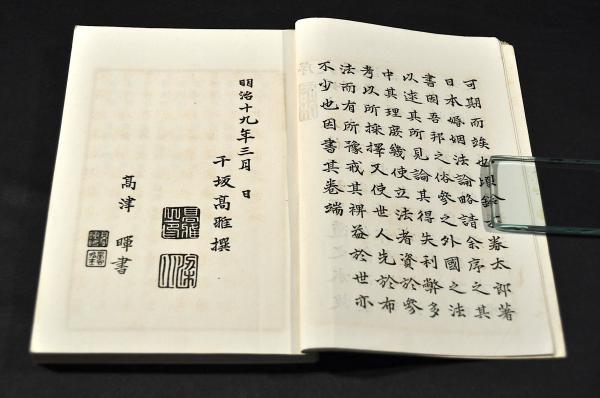 可期而竢也頃鈴券太郎著
日本婚姻法論略請余序之其
書因吾邦之俗參之外國之法
以述其所見論其得失利弊多
中其理庶幾使立法者資於參
考以所採擇又使世人先於布
法而有所豫戒其裨益於世亦
不少也因書其卷端
明治十九年三月 日
千坂高雅撰
高津 暉書